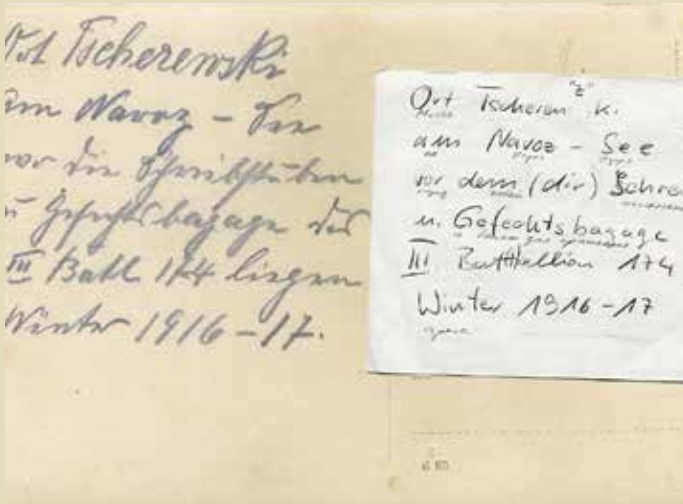 Ort Tscherewski
am Navoz – See
wo die Schreibstuben
u Gefechtsbagage des
III Batl 174 liegen
Winter 1916–17.
"z"
Ort Tscheren k.
am Navoz – See
vor dem (dir) Schre
u. Gefechtsbagage
III Batttallion 174
Winter 1916–17